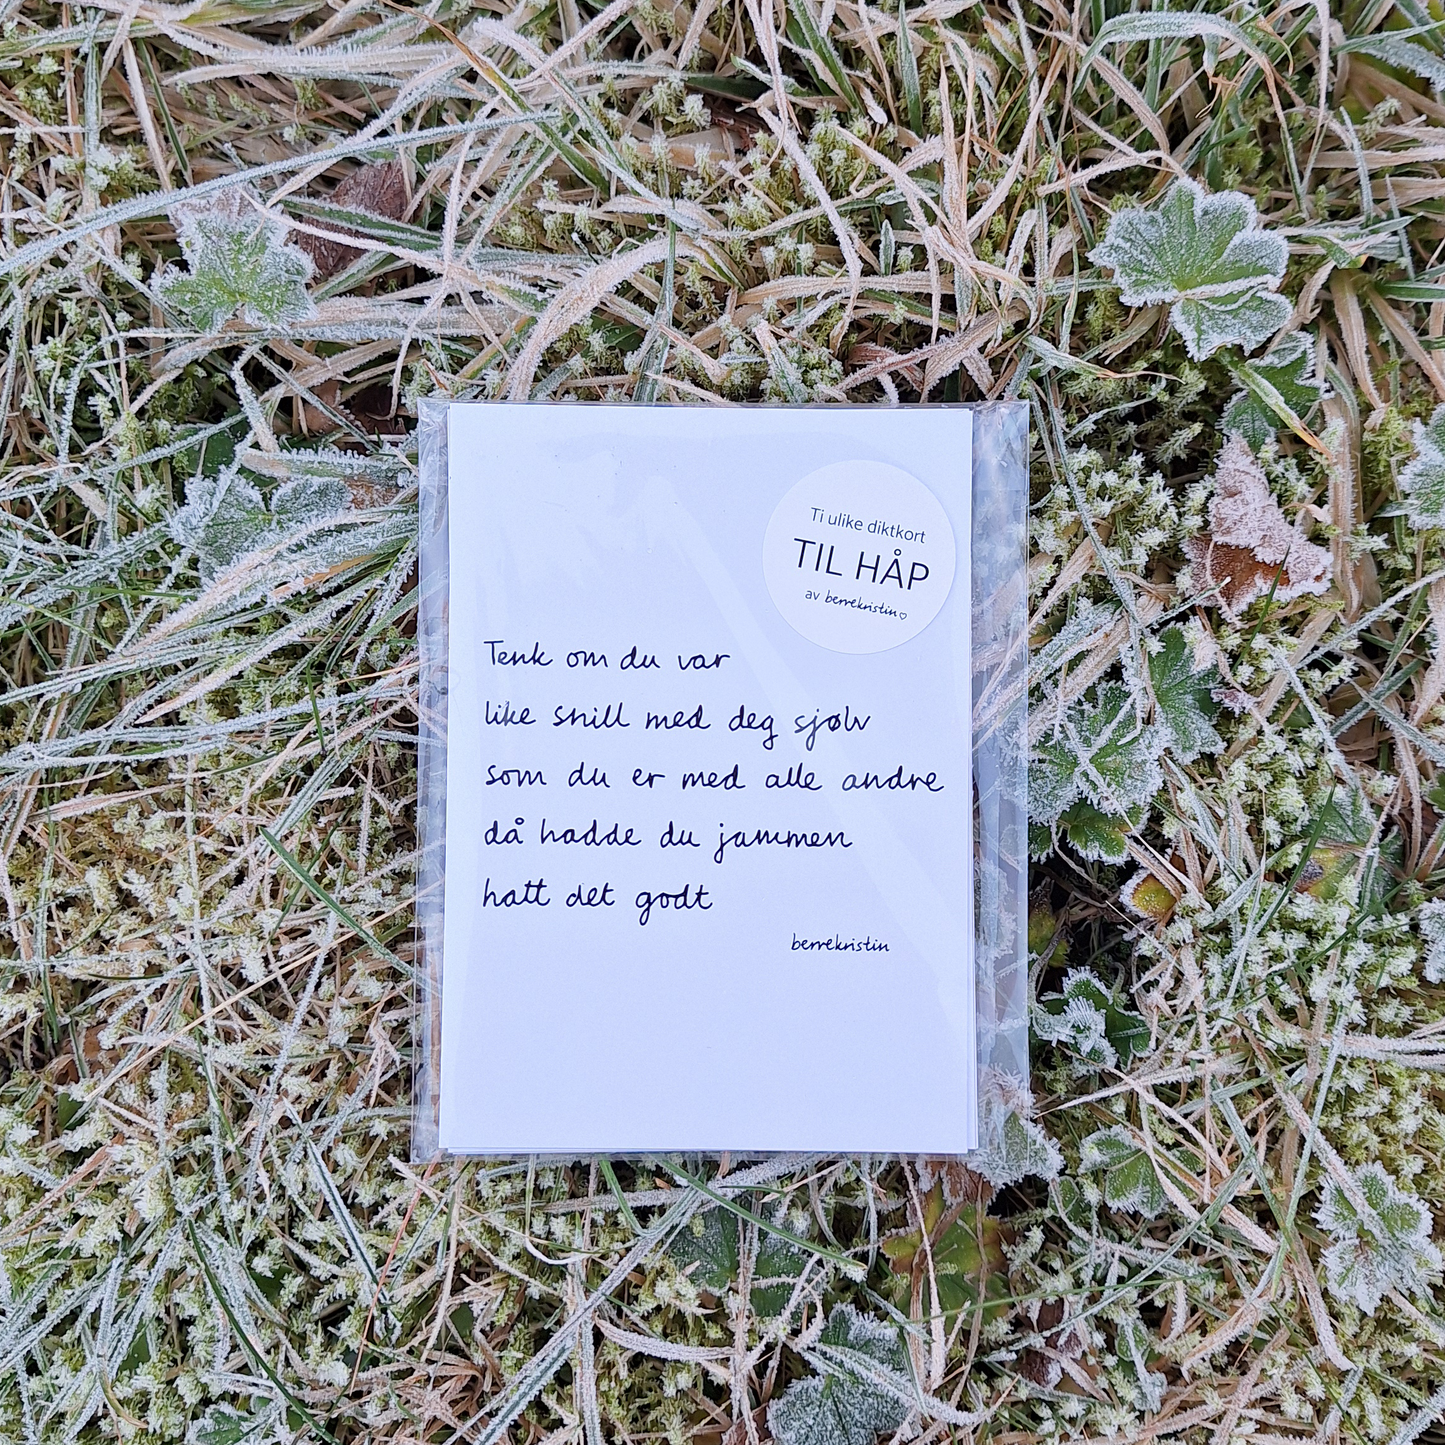 Ti ulike diktkort
TIL HÅP
av berrekristin♡
Tenk om du var
like snill med deg sjølv
som du er med alle andre
då hadde du jammen
hatt det godt
berrekristin